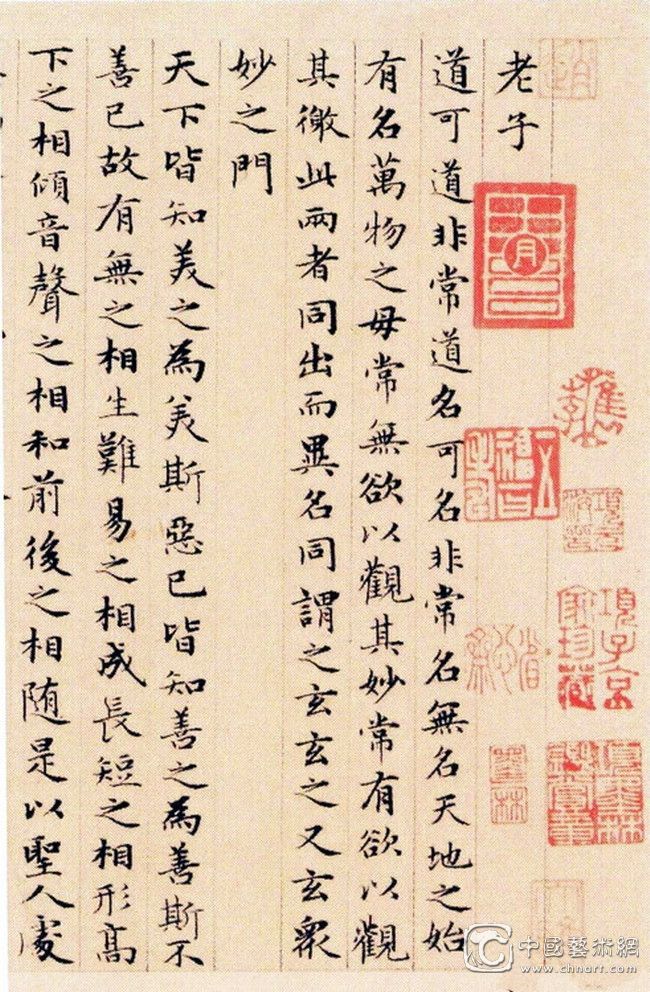 老子
道可道非常道名可名非常名無名天地之始
有名萬物之母常無欲以觀其妙常有欲以觀
其徼此兩者同出而異名同謂之玄玄之又玄衆
妙之門
天下皆知美之為美斯惡已皆知善之為善斯不
善已故有無之相生難易之相成長短之相形高
下之相傾音聲之相和前後之相随是以聖人處
項子京
家珍藏
中國藝術網
www.chnart.com